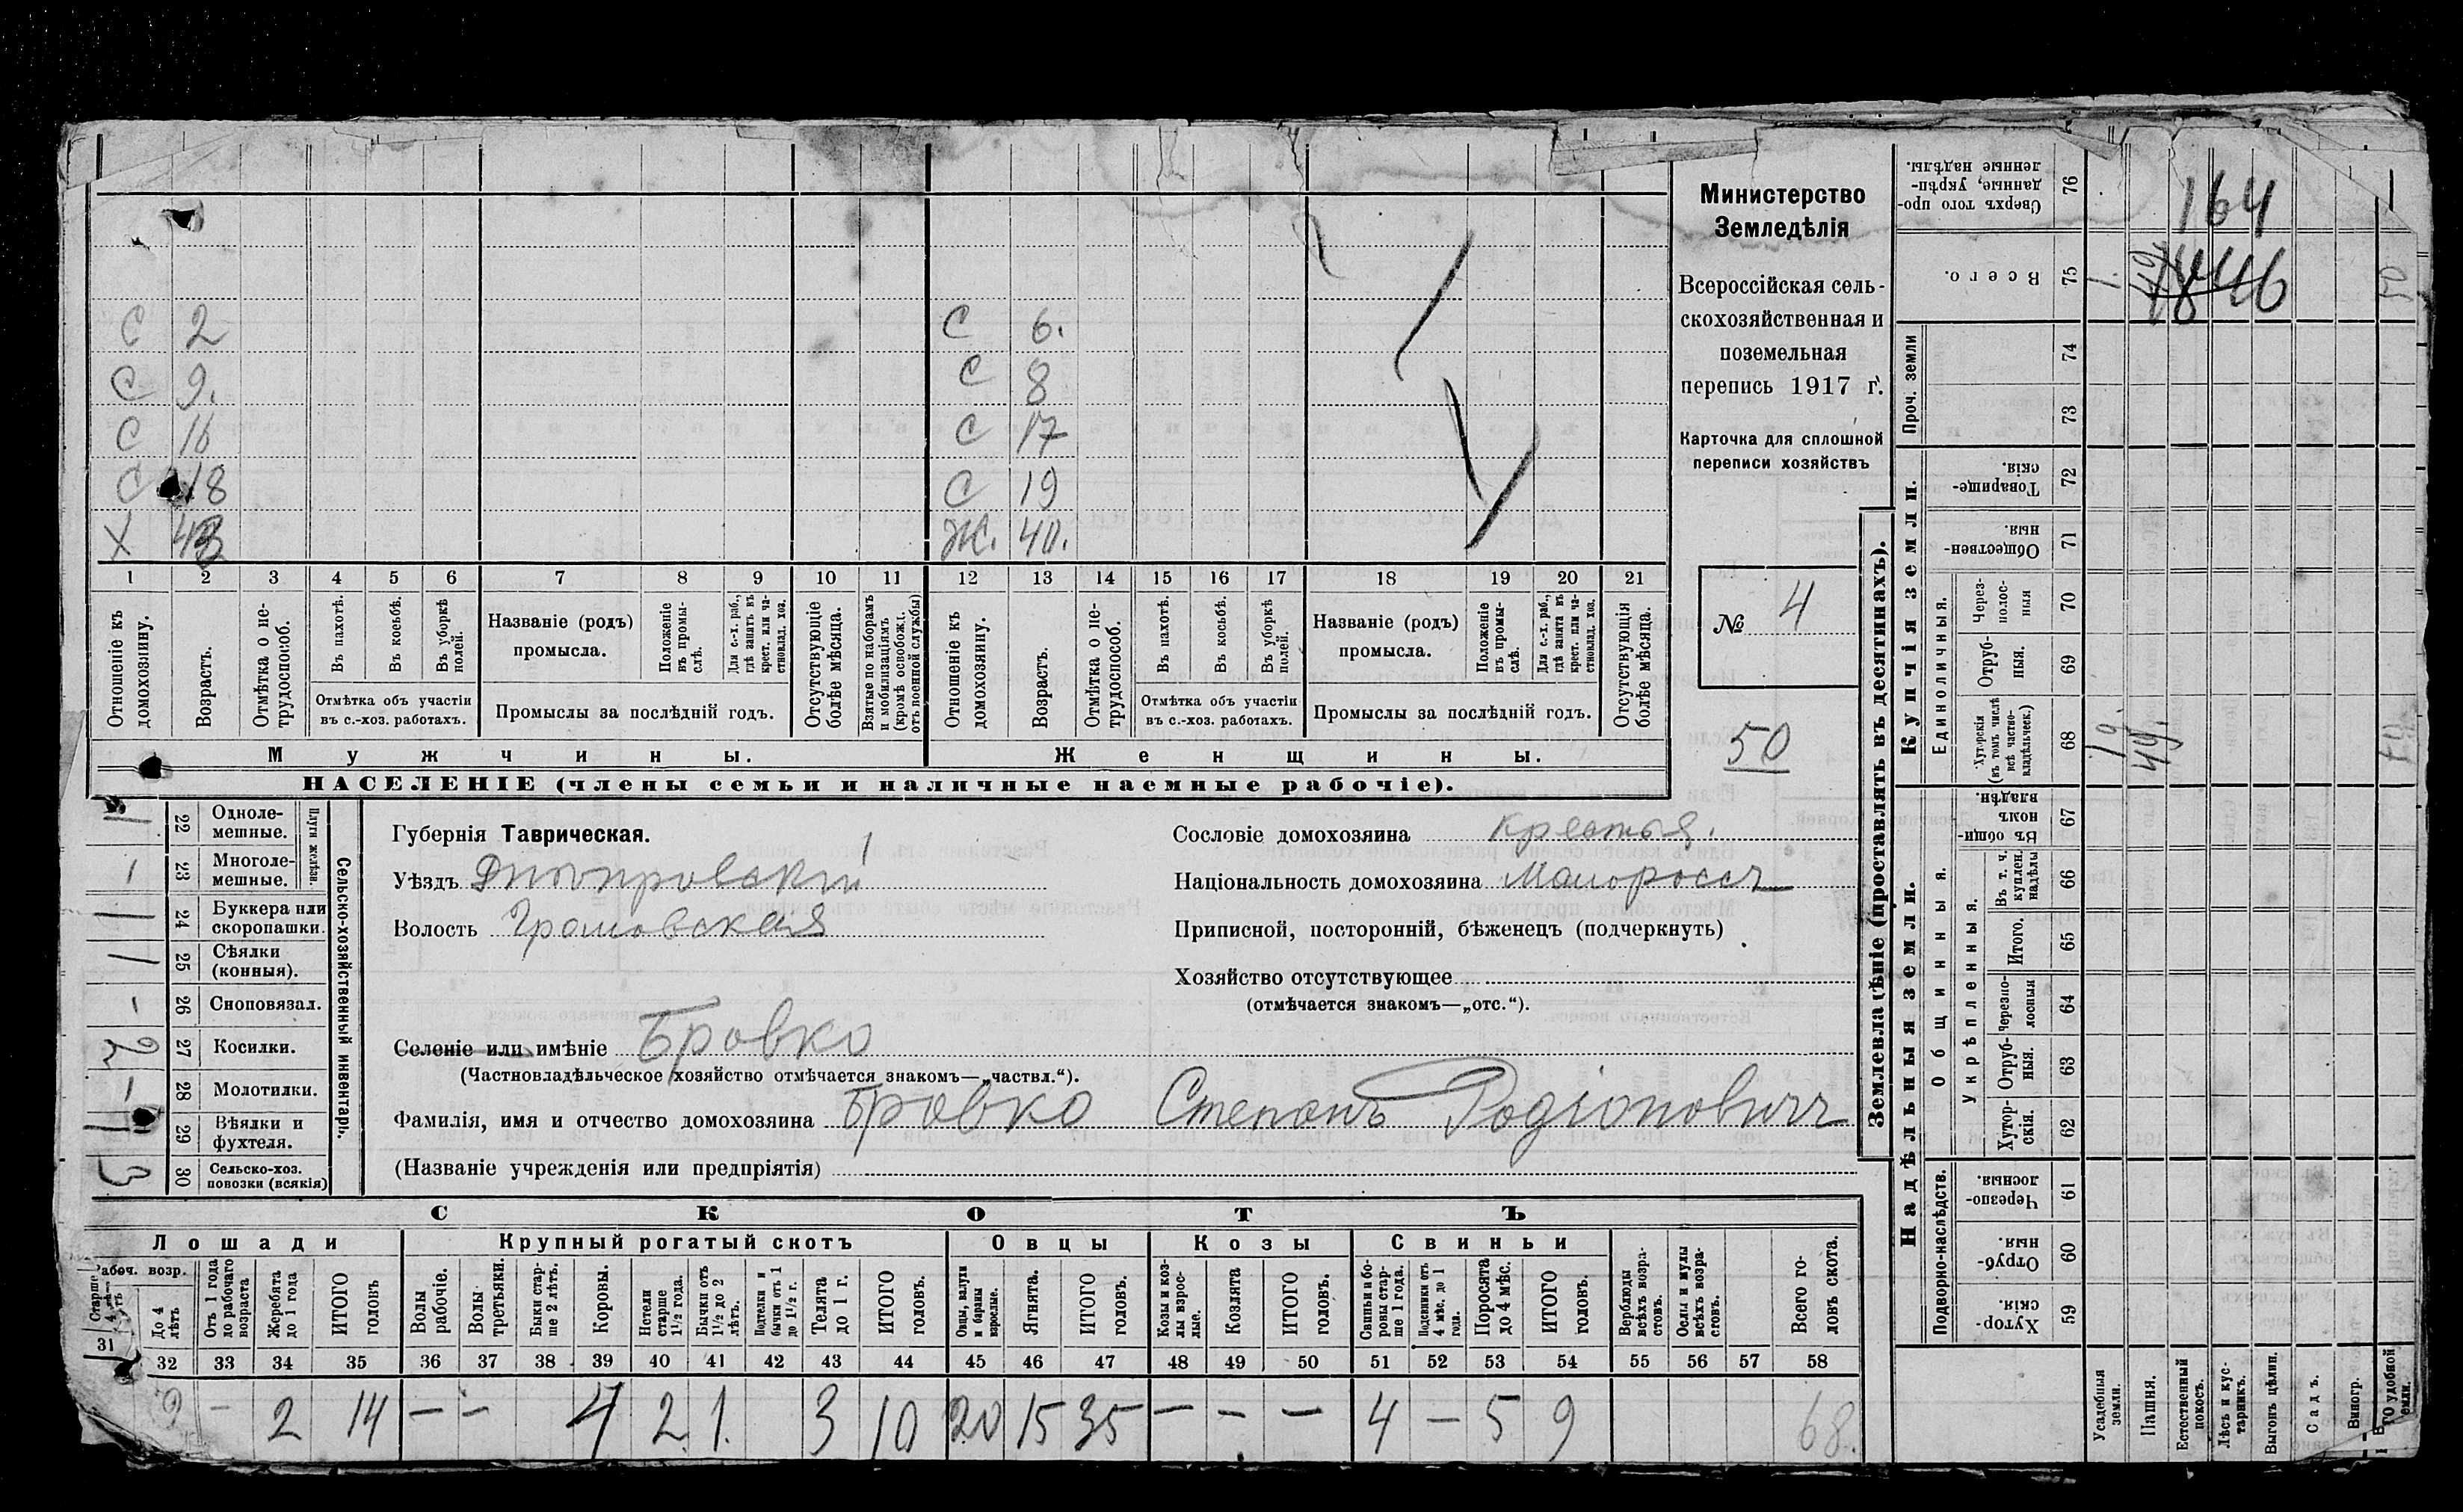 С 2 С 6.
С 9. С 8
С 16 С 17
С 18 С 19
Х 43 Ж. 40.
1 2 3 4 5 6 7 8 9 10 11 12 13 14 15 16 17 18 19 20 21
Отношеніе къ домохозяину.
Возрастъ.
Отмѣтка о не-трудоспособ.
Въ пахотѣ.
Въ косьбѣ.
Въ уборкѣ полей.
Отмѣтка объ участіи
въ с.-хоз. работахъ.
Названіе (родъ)
промысла.
Положеніе въ промы-слѣ.
Для с.-х. раб., гдѣ занятъ въ крест. или ча-стновлад. хоз.
Промыслы за послѣдній годъ.
Отсутствующіе болѣе мѣсяца.
Взятые по наборамъ и мобилизаціямъ (кромѣ освобожд. отъ военной службы)
Отношеніе къ домохозяину.
Возрастъ.
Отмѣтка о не-трудоспособ.
Въ пахотѣ.
Въ косьбѣ.
Въ уборкѣ полей.
Отмѣтка объ участіи
въ с.-хоз. работахъ.
Названіе (родъ)
промысла.
Положеніе въ промы-слѣ.
Для с.-х. раб., гдѣ занята въ крест. или ча-стновлад. хоз.
Промыслы за послѣдній годъ.
Отсутствующія болѣе мѣсяца.
Мужчины. Женщины.
НАСЕЛЕНІЕ (члены семьи и наличные наемные рабочіе).
Министерство
Земледѣлія
Всероссійская сель-
скохозяйственная и
поземельная
перепись 1917 г.
Карточка для сплошной
переписи хозяйствъ
№ 4
50
Сельско-хозяйственный инвентарь.
Плуги желѣзн.
22 Одноле-мешные.
1 23 Многоле-мешные.
1 24 Буккера или скоропашки.
1 25 Сѣялки (конныя).
- 26 Сноповязал.
2 27 Косилки.
- 28 Молотилки.
1 29 Вѣялки и фухтеля.
3 30 Сельско-хоз. повозки (всякія)
Губернія Таврическая.
Уѣздъ Днѣпровскій
Волость Громовская
Селеніе или имѣніе Бровко
(Частновладѣльческое хозяйство отмѣчается знакомъ—„частвл.“).
Фамилія, имя и отчество домохозяина Бровко Степанъ Родіоновичъ
(Названіе учрежденія или предпріятія)
Сословіе домохозяина крестья.
Національность домохозяина Малороссъ
Приписной, посторонній, бѣженецъ (подчеркнуть)
Хозяйство отсутствующее
(отмѣчается знакомъ—„отс.“).
СКОТЪ
Лошади Крупный рогатый скотъ Овцы Козы Свиньи
Рабоч. возр.
Старше 4 лѣтъ
До 4 лѣтъ
Отъ 1 года до рабочаго возраста
Жеребята до 1 года
ИТОГО головъ
Волы рабочіе.
Волы третьяки.
Быки стар-ше 2 лѣтъ.
Коровы.
Нетели старше 1½ года.
Бычки отъ 1½ до 2 лѣтъ.
Подтелки и бычки отъ 1 до 1½ г.
Телята до 1 г.
ИТОГО головъ.
Овцы, валухи и бараны взрослые.
Ягнята.
ИТОГО головъ.
Козы и коз-лы взрос-лые.
Козлята
ИТОГО головъ.
Свиньи и бо-ровы стар-ше 1 года.
Подсвинки отъ 4 мѣс. до 1 года.
Поросята до 4 мѣс.
ИТОГО головъ.
Верблюды всѣхъ возра-стовъ.
Ослы и мулы всѣхъ возра-стовъ.
Всего го-ловъ скота.
31 32 33 34 35 36 37 38 39 40 41 42 43 44 45 46 47 48 49 50 51 52 53 54 55 56 57 58
- 2 14 - - 4 2. 1. 3 10 20 15 35 - - - 4 - 5 9 68.
Землевладѣніе (проставлять въ десятинахъ).
Надѣльныя земли.
Купчія земли.
Проч. земли
Подворно-наслѣдств.
Общинныя.
Укрѣпленныя.
Единоличныя.
Сверхъ того про-данные, укрѣп-ленные надѣлы. 76
Всего. 75
74
73
Товарище-скія. 72
Обществен-ныя. 71
Через-полос-ныя 70
Отруб-ныя. 69
Хуторскія (въ томъ числѣ всѣ частно-владѣльческ.) 68
Въ общин-номъ владѣн. 67
Въ т. ч. куплен. надѣлы 66
Итого. 65
Черезпо-лосныя 64
Отруб-ныя. 63
Хутор-скія. 62
Черезпо-лосныя. 61
Отруб-ныя. 60
Хутор-скія. 59
Усадебныя земли.
Пашня.
Естественный покосъ.
Лѣсъ и кус-тарникъ.
Выгонъ цѣлин.
Садъ.
Виногр.
удобной земли.
164
1. 49 50
1. 49.